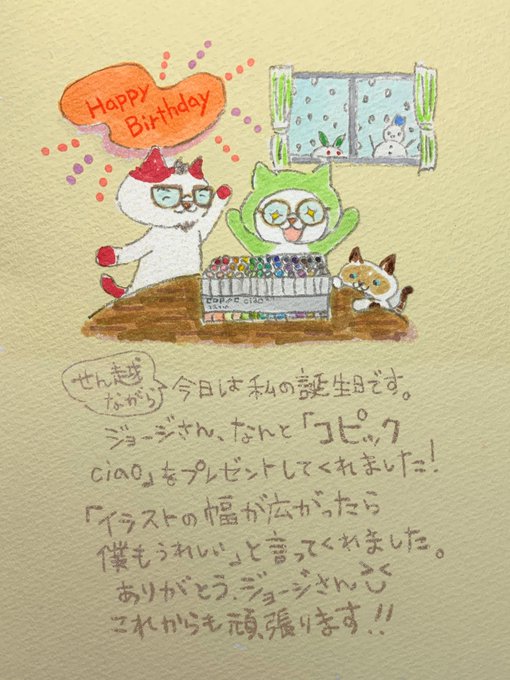 Happy
Birthday
COPIC ciao
せん越
ながら
今日は私の誕生日です。
ジョージさん、なんと「コピック
ciao」をプレゼントしてくれました！
「イラストの幅が広がったら
僕もうれしい」と言ってくれました。
ありがとう、ジョージさん
これからも頑張ります!!